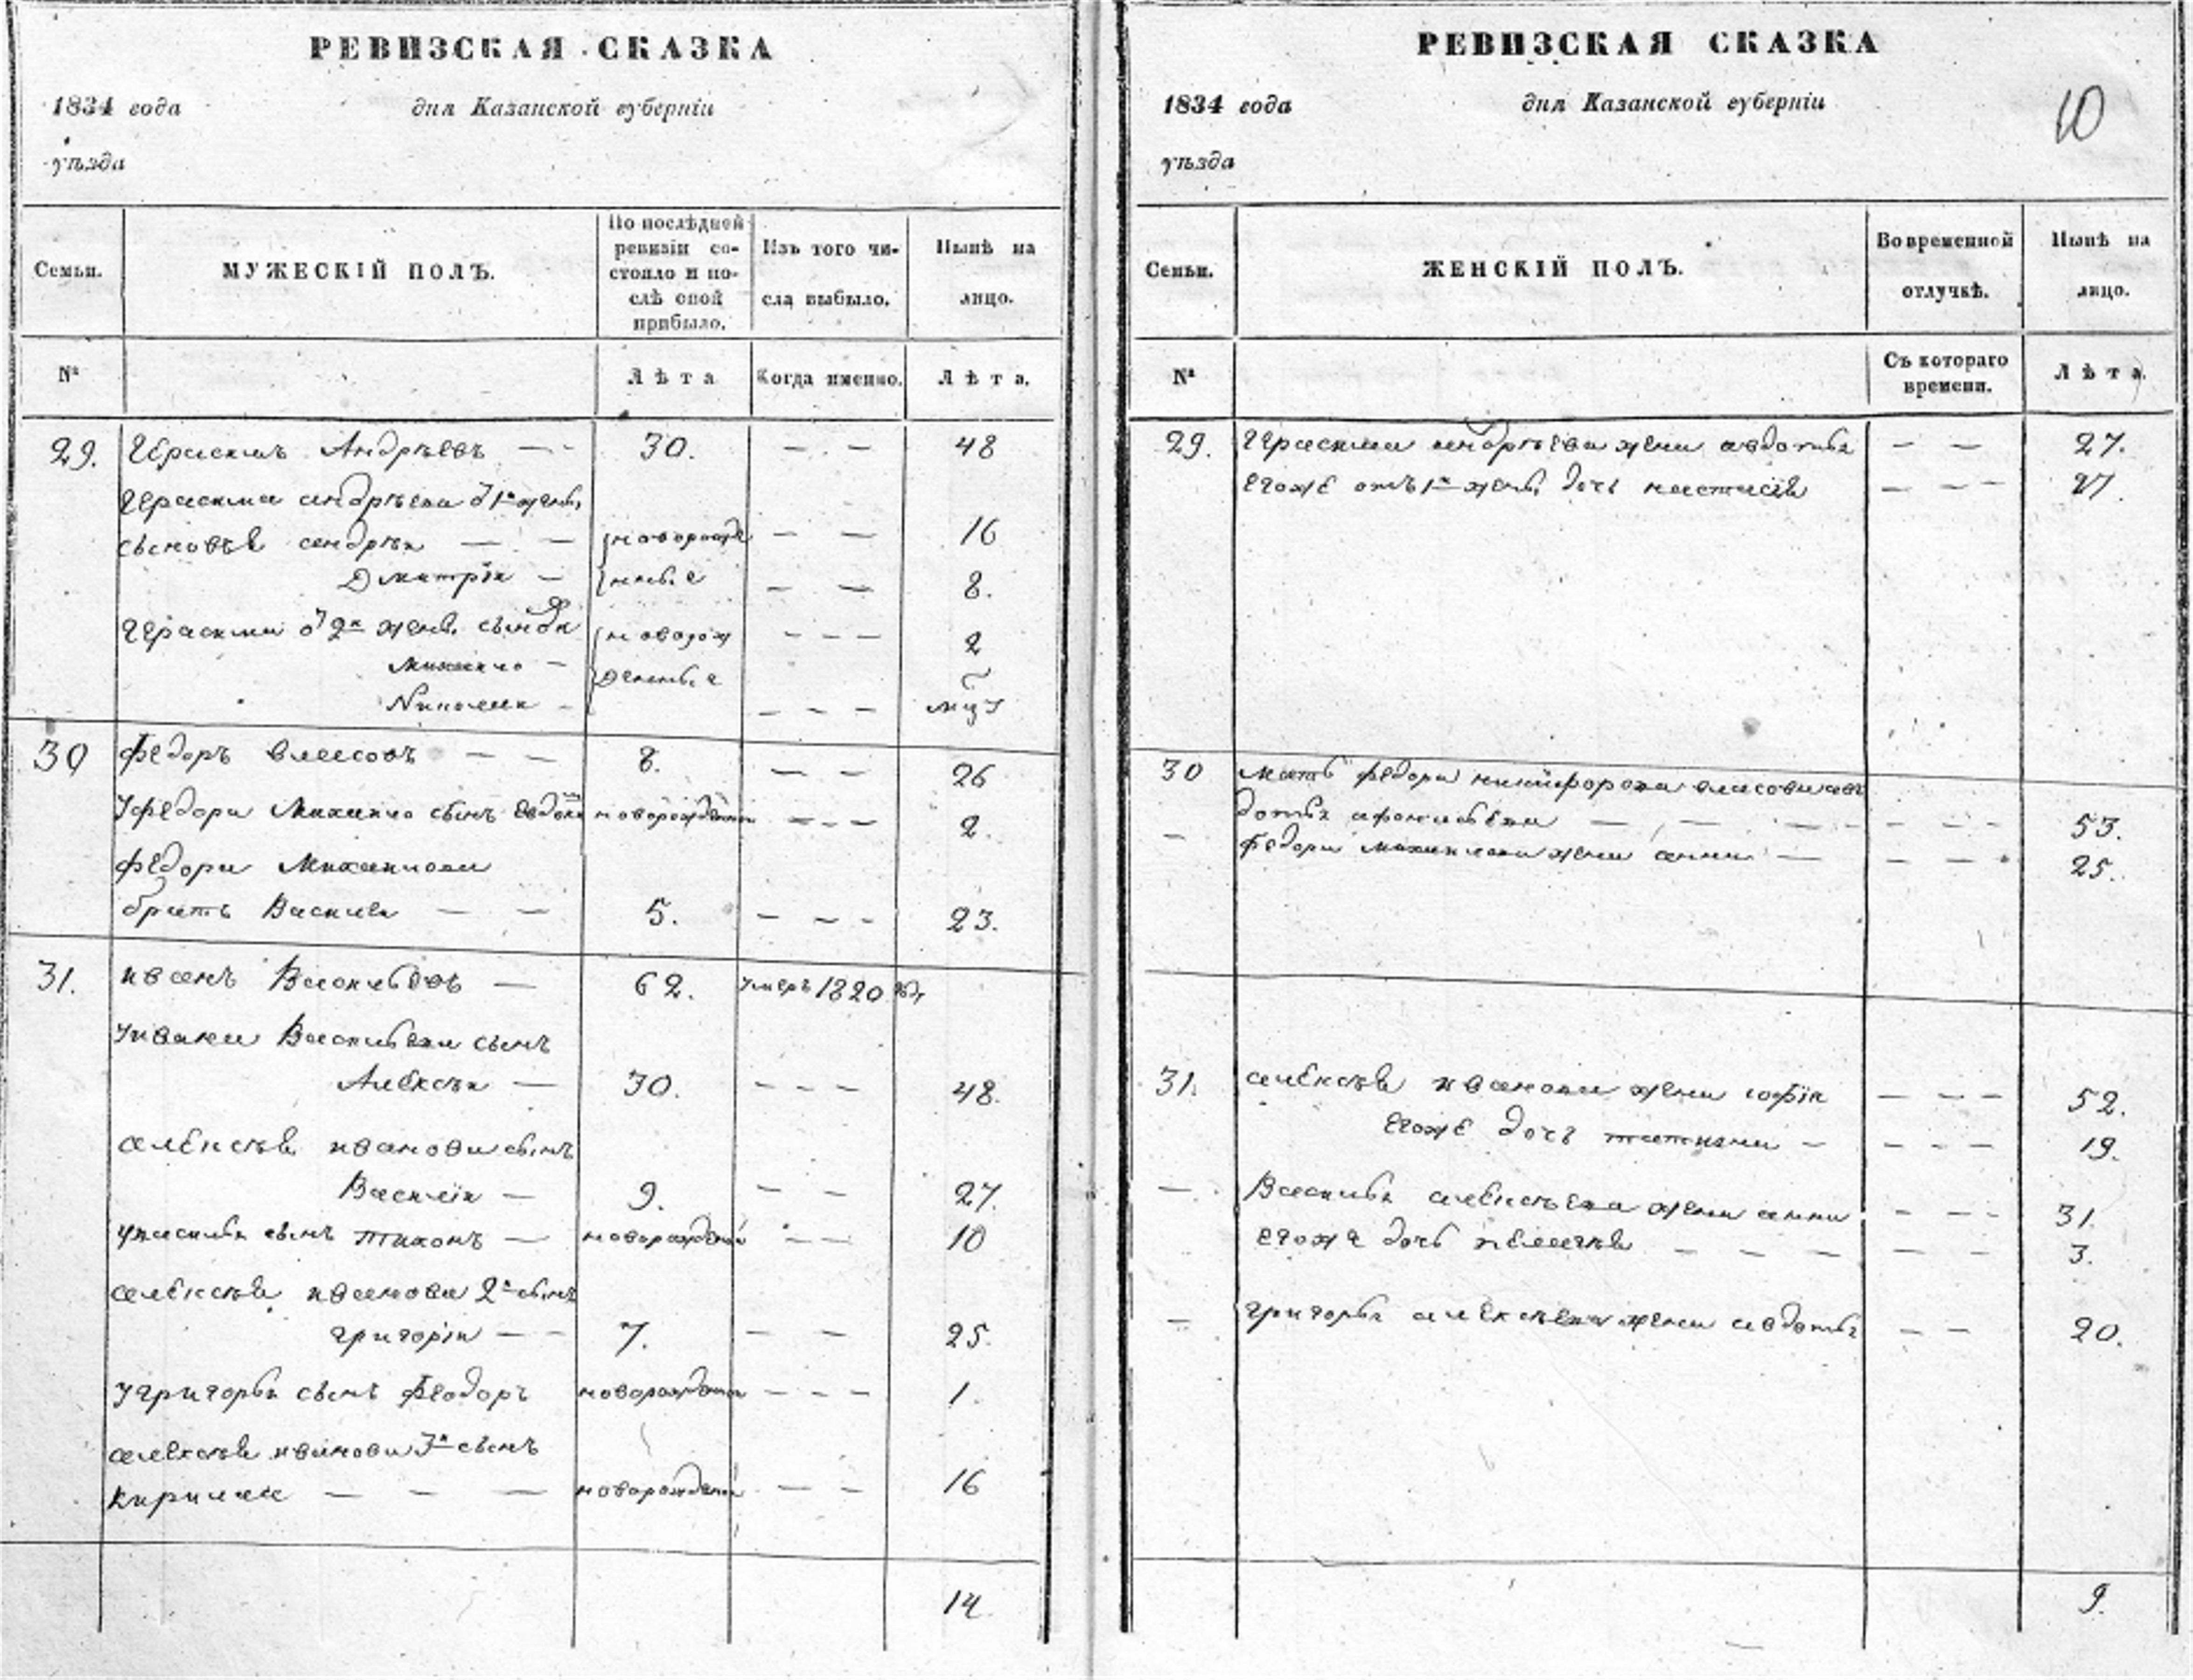 РЕВИЗСКАЯ СКАЗКА
1834 года дня Казанской губернiи
уѣзда
Семьи. МУЖЕСКIЙ ПОЛЪ. По послѣдней ревизiи состояло и послѣ оной прибыло. Изъ того числа выбыло. Нынѣ на лицо.
№ Лѣта Когда именно. Лѣта.
29. Герасимъ Андрѣевъ — — 30. — — 48
Герасима андрѣева 1й жены
сыновья андрѣй — — новорожде — — 16
Дмитрiй — нные — — 8.
Герасима 2й жены сыновья новорож — — — 2
Михаило — денные
Николай — — — — мцъ
30 Федоръ власовъ — — 8. — — 26
У федора Михайло сынъ новорожденный — — — 2.
Федора Михайлова
братъ Василей — — 5. — — — 23.
31. иванъ Васильевъ — 62. умеръ 1820 году
У ивана Васильева сынъ
Алексѣй — 30. — — — 48.
алексѣя иванова сынъ
Василiй — 9. — — 27.
У василья сынъ тихонъ — новорожденный — — 10
алексѣя иванова 2й сынъ
григорiй — — 7. — — 25.
У григорья сынъ Феодоръ новорожденный — — — 1.
алексѣя иванова 3й сынъ
кирилла — — — новорожденный — — 16
14
РЕВИЗСКАЯ СКАЗКА
1834 года дня Казанской губернiи 10
уѣзда
Семьи. ЖЕНСКIЙ ПОЛЪ. Во временной отлучкѣ. Нынѣ на лицо.
№ Съ котораго времени. Лѣта.
29. Герасима андрѣева жена авдотья — — 27.
егоже отъ 1й жены дочь настасiя — — — 27.
30 мать федора никифорова власова ав
дотья — — — — — — 53.
— федора михайлова жена анна — — — — 25.
31. алексѣя иванова жена софiя — — — 52.
егоже дочь татияна — — — — 19.
— Василья алексѣева жена анна — — — 31.
егоже дочь пелагѣя — — — — — 3.
— григорья алексѣева жена авдотья — — 20.
9.